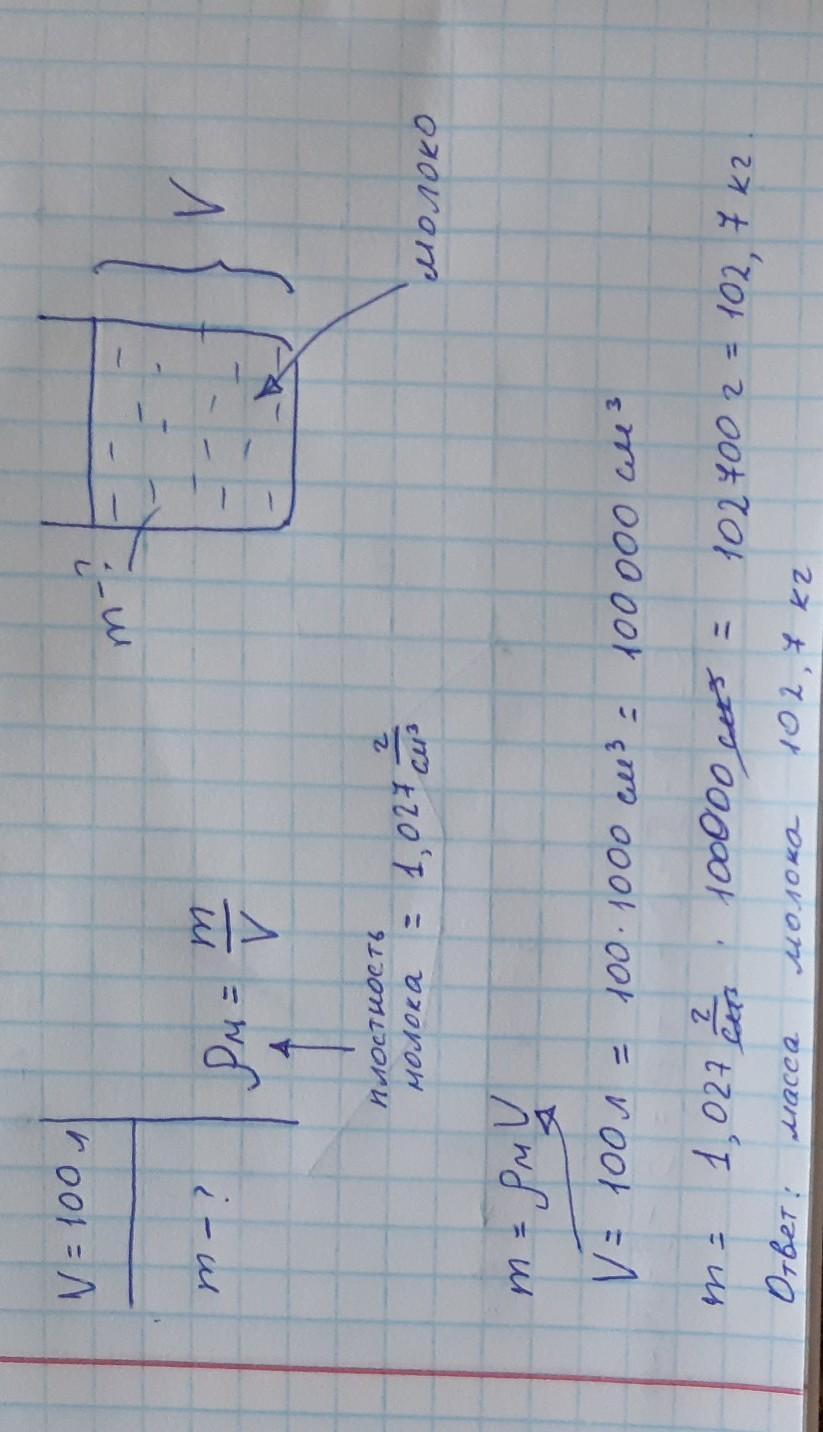 V = 100 л
m - ?
ρм = m/V
плостность
молока = 1,027 г/см³
m - ?
V
молоко
m = ρм V
V = 100 л = 100 · 1000 см³ = 100 000 см³
m = 1,027 г/см³ · 100000 см³ = 102700 г = 102,7 кг
Ответ: масса молока 102,7 кг